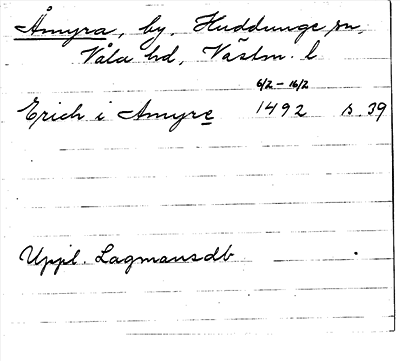 Åmyra, by, Huddunge sn,
Våla hd, Västm. l
6/2 – 16/2
Erich i Amyre 1492 s. 39
Uppl. Lagmansdb